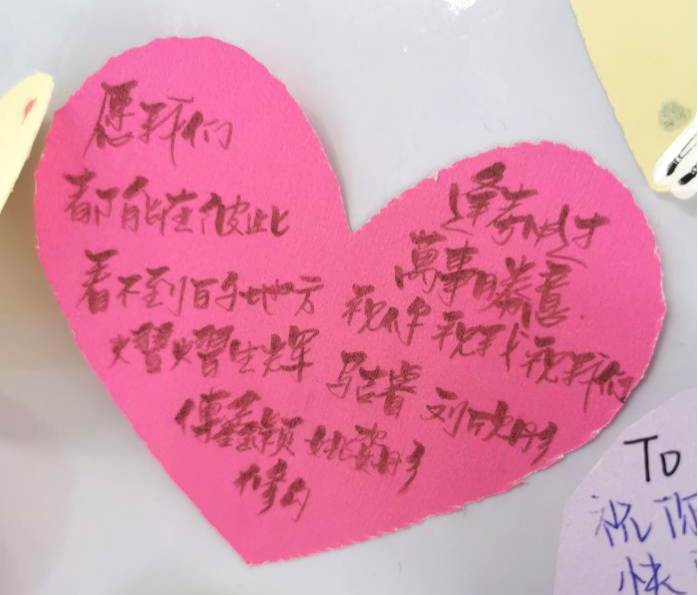 愿我们
都能在彼此
看不到的地方
熠熠生辉
逢考必过
萬事勝意
祝你 祝我 祝我们
马吉睿 刘欣彤
傅鑫颖 姚姿彤
TO
祝你
快